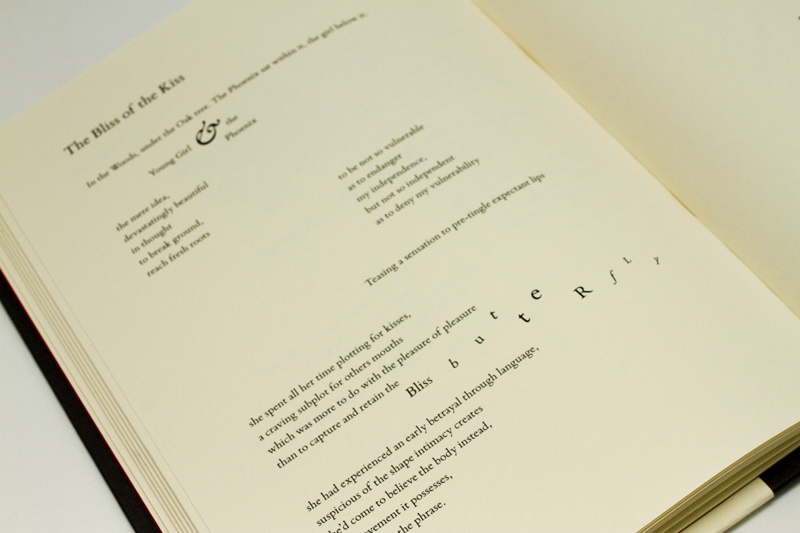 The Bliss of the Kiss
In the Woods, under the Oak tree. The Phoenix sat within it, the girl below it.
Young Girl & the Phoenix
the mere idea,
devastatingly beautiful
in thought
to break ground,
reach fresh roots
to be not so vulnerable
as to endanger
my independence,
but not so independent
as to deny my vulnerability
Teasing a sensation to pre-tingle expectant lips
she spent all her time plotting for kisses,
a craving subplot for others mouths
which was more to do with the pleasure of pleasure
than to capture and retain the Bliss b u t t e R f L y
she had experienced an early betrayal through language,
suspicious of the shape intimacy creates
she'd come to believe the body instead,
movement it possesses,
the phrase.